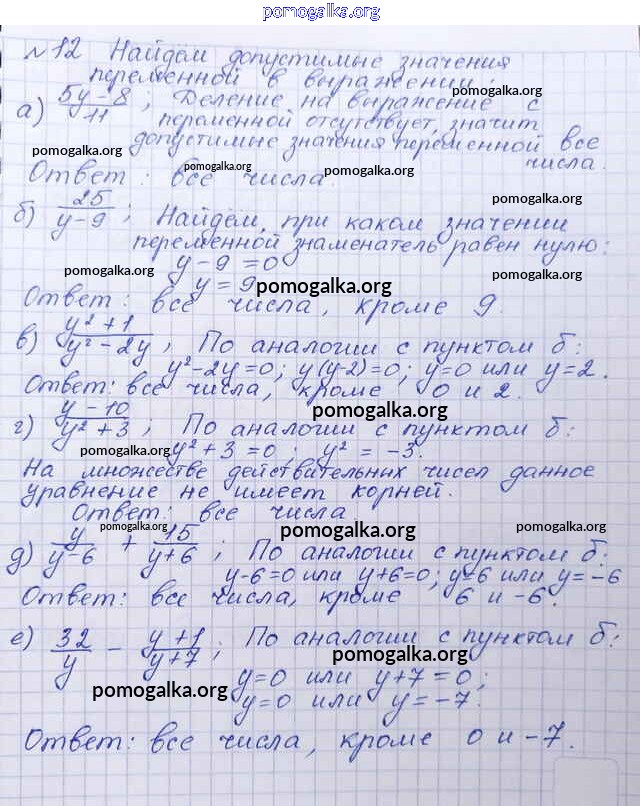 pomogalka.org
№12 Найдём допустимые значения
переменной в выражении:
pomogalka.org
а) (5y-8)/11; Деление на выражение с
переменной отсутствует, значит
допустимые значения переменной все
числа.
pomogalka.org pomogalka.org pomogalka.org
Ответ: все числа.
б) 25/(y-9); Найдём, при каком значении
pomogalka.org
переменной знаменатель равен нулю:
y-9=0
pomogalka.org pomogalka.org
y=9 pomogalka.org
Ответ: все числа, кроме 9.
в) (y²+1)/(y²-2y); По аналогии с пунктом б:
y²-2y=0; y(y-2)=0; y=0 или y=2.
Ответ: все числа, кроме 0 и 2.
pomogalka.org
г) (y-10)/(y²+3); По аналогии с пунктом б:
pomogalka.org y²+3=0; y²=-3.
На множестве действительных чисел данное
уравнение не имеет корней.
Ответ: все числа
pomogalka.org pomogalka.org pomogalka.org
д) y/(y-6) + 15/(y+6); По аналогии с пунктом б:
y-6=0 или y+6=0; y=6 или y=-6
Ответ: все числа, кроме 6 и -6.
е) 32/y - (y+1)/(y+7); По аналогии с пунктом б:
pomogalka.org
y=0 или y+7=0;
pomogalka.org y=0 или y=-7.
Ответ: все числа, кроме 0 и -7.